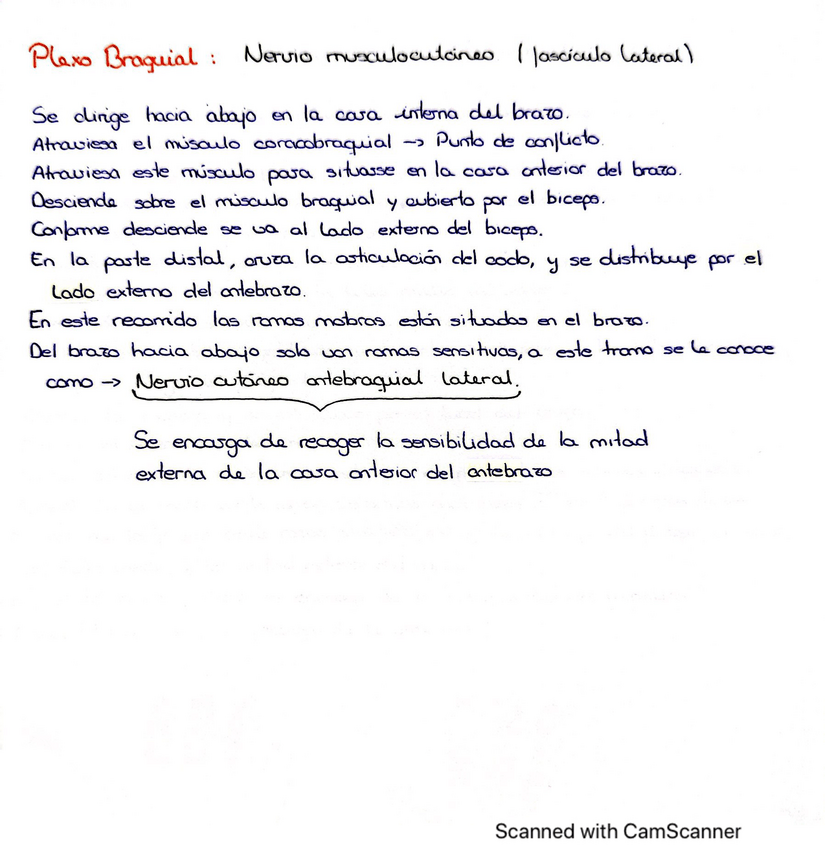 Plexo Braquial : Nervio musculocutáneo (fascículo lateral)
Se dirige hacia abajo en la cara interna del brazo.
Atraviesa el músculo coracobraquial → Punto de conflicto.
Atraviesa este músculo para situarse en la cara anterior del brazo.
Desciende sobre el músculo braquial y cubierto por el bíceps.
Conforme desciende se va al lado externo del bíceps.
En la parte distal, cruza la articulación del codo, y se distribuye por el
lado externo del antebrazo.
En este recorrido las ramas motoras están situadas en el brazo.
Del brazo hacia abajo solo van ramas sensitivas, a este tramo se le conoce
como → Nervio cutáneo antebraquial lateral.
Se encarga de recoger la sensibilidad de la mitad
externa de la cara anterior del antebrazo
Scanned with CamScanner